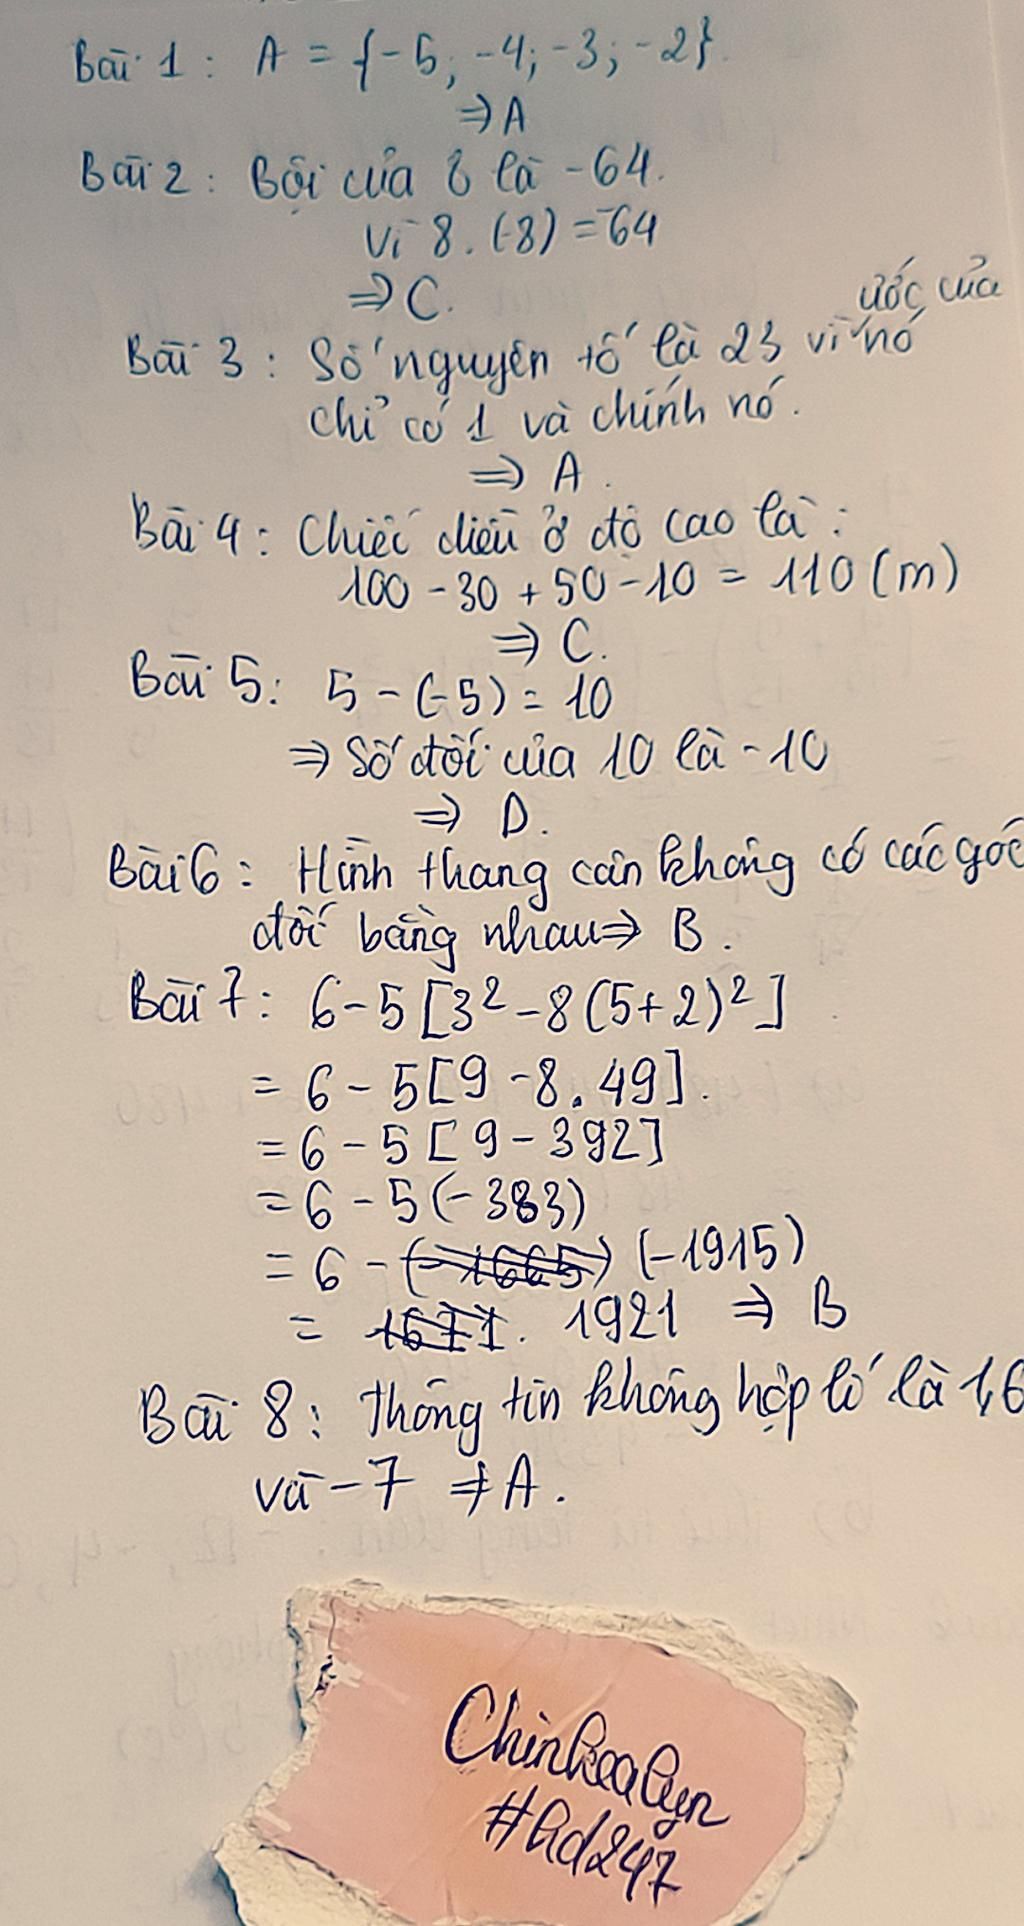 Bài 1: A = {-5; -4; -3; -2}.
⇒ A
Bài 2: Bội của 8 là -64.
Vì 8. (-8) = -64
⇒ C.
ước của
Bài 3: Số nguyên tố là 23 vì nó
chỉ có 1 và chính nó.
⇒ A.
Bài 4: Chiếc diều ở độ cao là:
100 - 30 + 50 - 10 = 110 (m)
⇒ C.
Bài 5: 5 - (-5) = 10
⇒ Số đối của 10 là -10
⇒ D.
Bài 6: Hình thang cân không có các góc
đối bằng nhau ⇒ B.
Bài 7: 6 - 5 [3² - 8 (5 + 2)²]
= 6 - 5 [9 - 8. 49].
= 6 - 5 [9 - 392]
= 6 - 5 (-383)
= 6 - (-1915)
= 1921 ⇒ B
Bài 8: Thông tin không hợp lí là 1,6
và -7 ⇒ A.
Chinkealyn
#Ad247